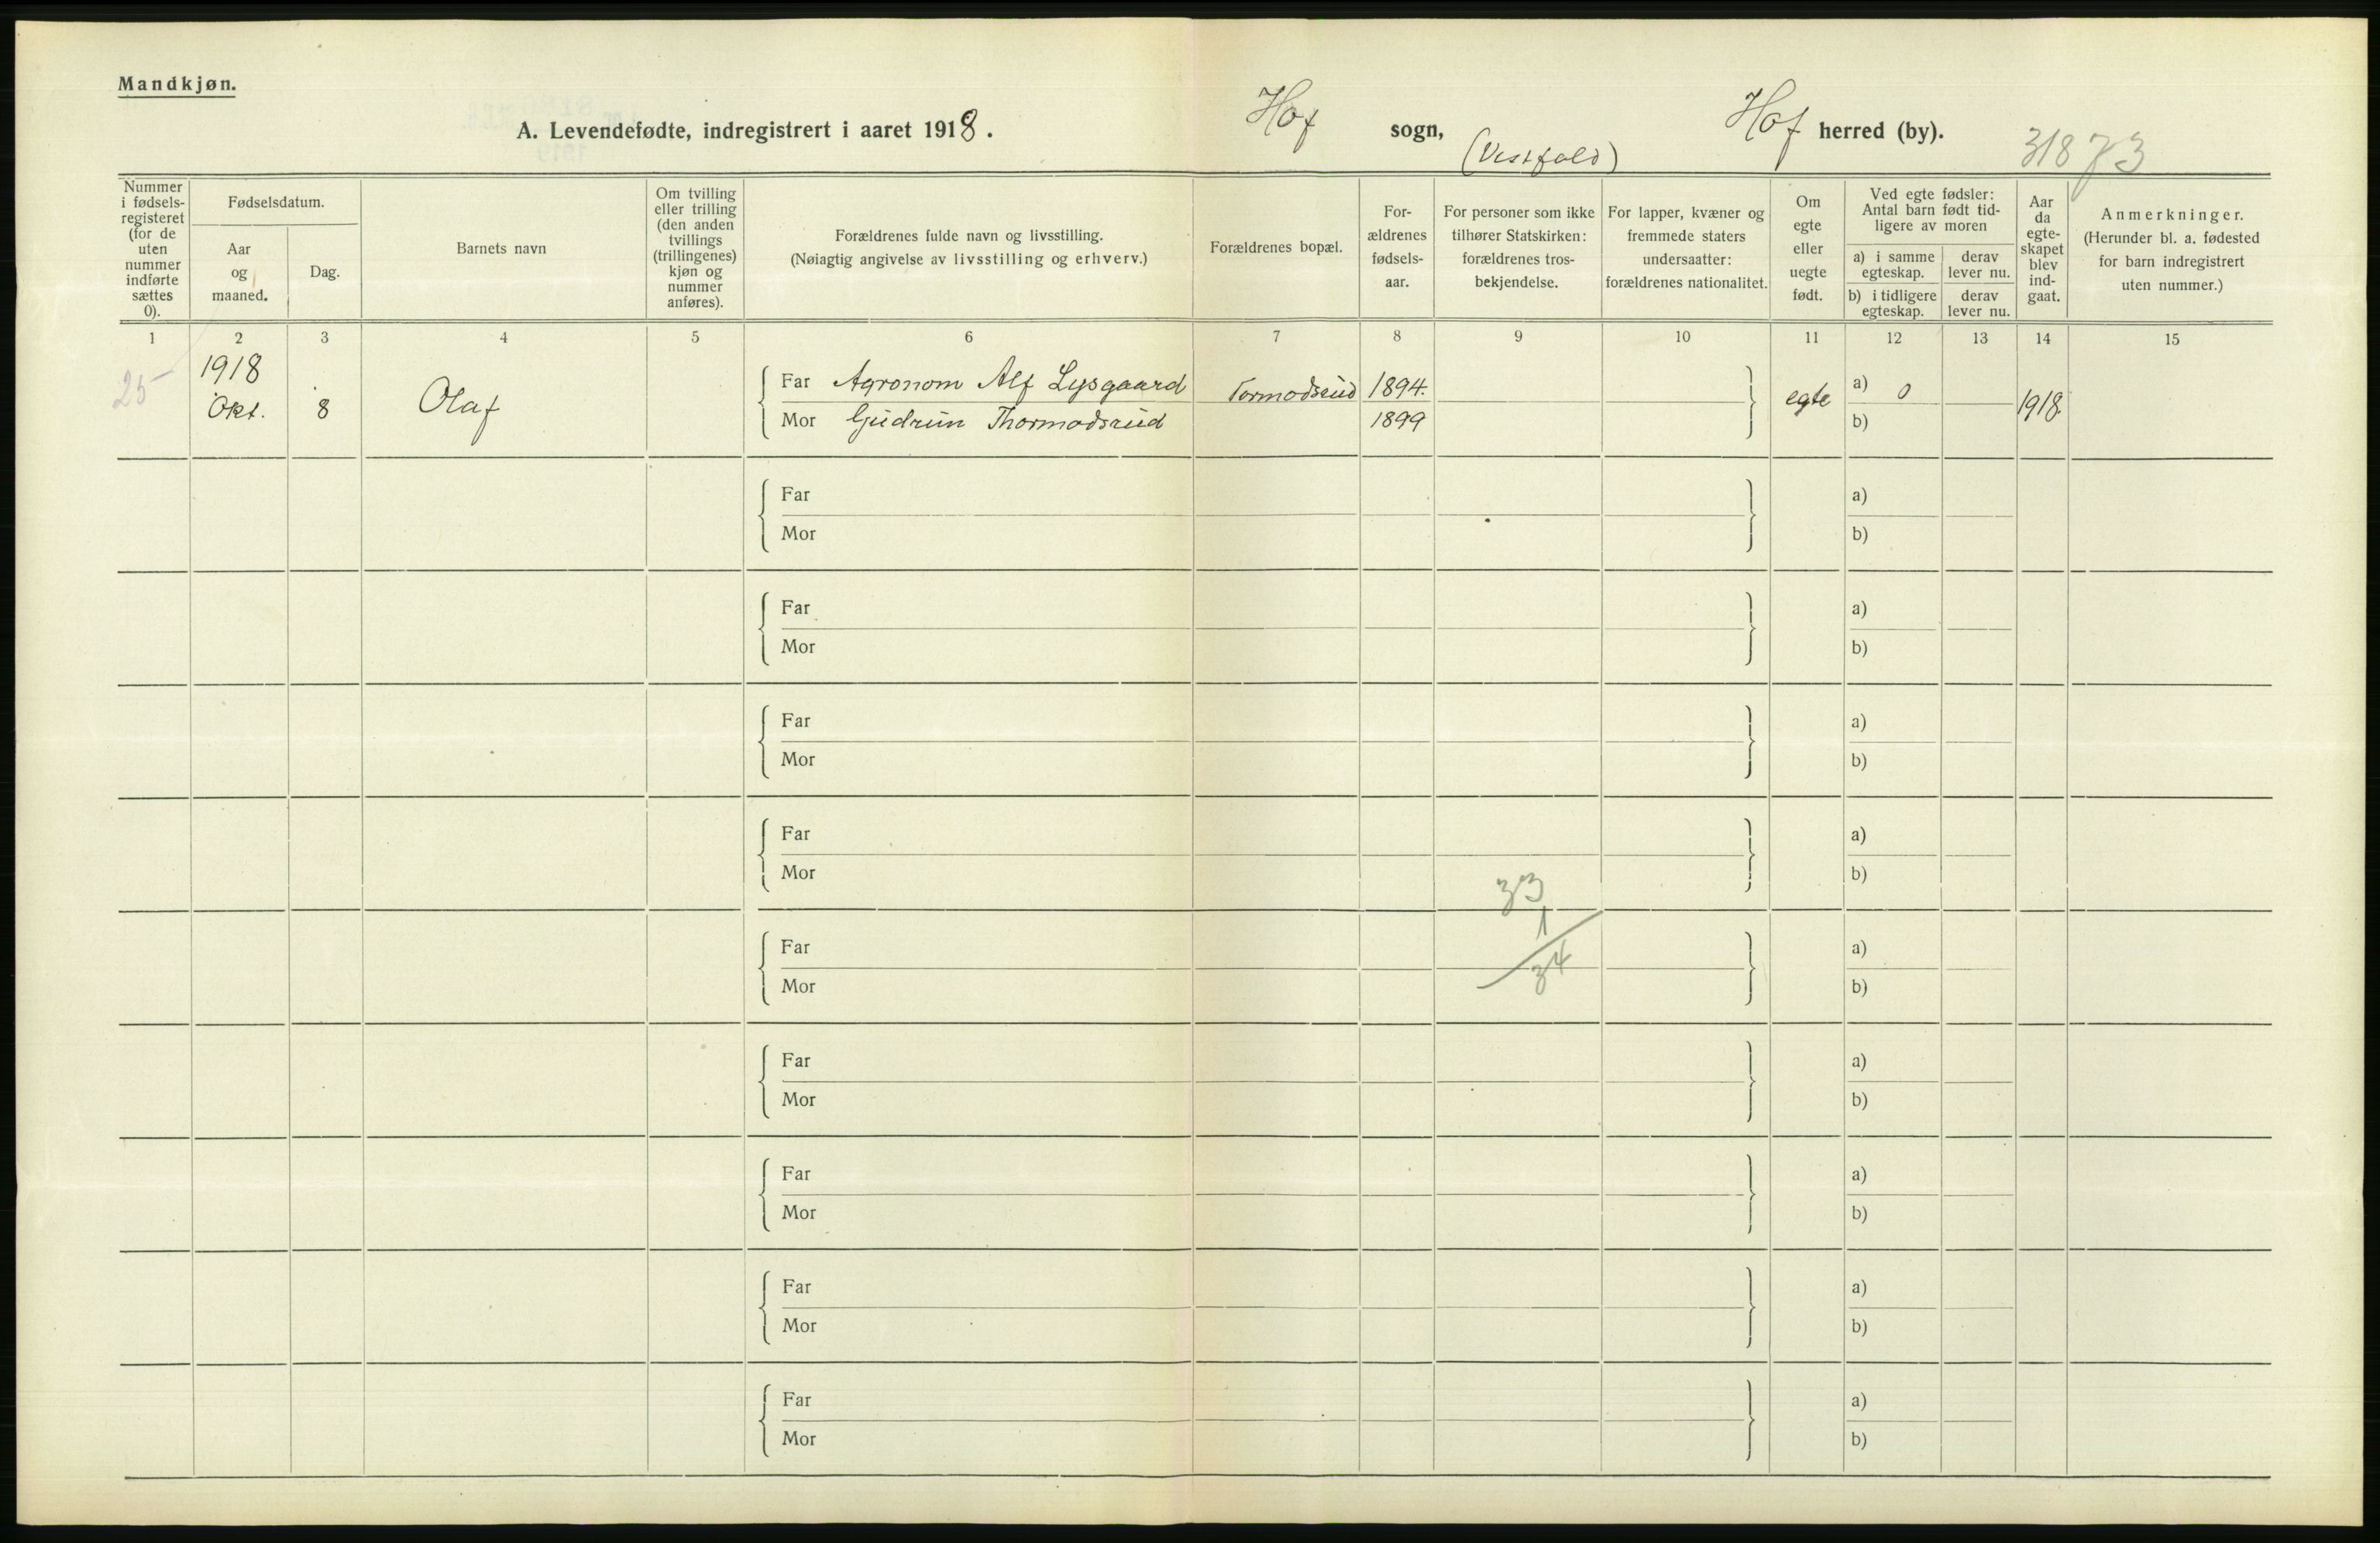 Mandkjøn.
A. Levendefødte, indregistrert i aaret 1918.
Hof sogn, (Vestfold) Hof herred (by). 31873
Nummer i fødsels-registeret (for de uten nummer indførte sættes 0).
Fødselsdatum.
Aar og maaned.
Dag.
Barnets navn
Om tvilling eller trilling (den anden tvillings (trillingenes) kjøn og nummer anføres).
Forældrenes fulde navn og livsstilling.
(Nøiagtig angivelse av livsstilling og erhverv.)
Forældrenes bopæl.
For-ældrenes fødsels-aar.
For personer som ikke tilhører Statskirken: forældrenes tros-bekjendelse.
For lapper, kvæner og fremmede staters undersaatter: forældrenes nationalitet.
Om egte eller uegte født.
Ved egte fødsler: Antal barn født tid-ligere av moren
a) i samme egteskap.
derav lever nu.
b) i tidligere egteskap.
derav lever nu.
Aar da egte-skapet blev ind-gaat.
Anmerkninger.
(Herunder bl. a. fødested for barn indregistrert uten nummer.)
1 2 3 4 5 6 7 8 9 10 11 12 13 14 15
25 1918 Okt. 8 Olaf
Far Agronom Alf Lysgaard Tormodsrud 1894. egte a) 0 1918.
Mor Gudrun Thormodsrud 1899 b)
Far a)
Mor b)
Far a)
Mor b)
Far a)
Mor b)
Far a)
Mor b)
33
1
Far a)
34
Mor b)
Far a)
Mor b)
Far a)
Mor b)
Far a)
Mor b)
Far a)
Mor b)